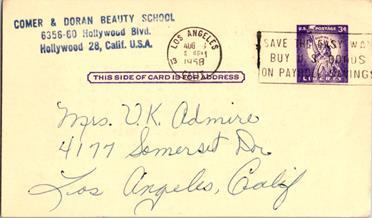 COMER & DORAN BEAUTY SCHOOL
6356-60 Hollywood Blvd.
Hollywood 28, Calif. U.S.A.
LOS ANGELES
AUG
1958
SAVE THE EASY WAY
BUY BONDS
ON PAYROLL SAVINGS
U.S. POSTAGE 3¢
LIBERTY
THIS SIDE OF CARD IS FOR ADDRESS
Mrs. V.K. Admire
4177 Somerset Dr.
Los Angeles, Calif